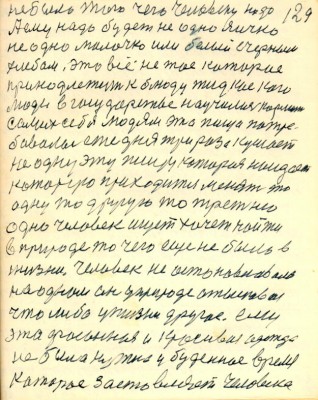 не было этого чего человеку надо 129
Ему надо будет не одно яичко
не одно молочко или белый с черным
хлебом. Это всё не тое которое
принадлежит к блюду
люди в государстве научились кормить
самих себя Людям эта пища потре-
бовалась ежедня три раза кушает
не одну эту пищу которая
которую приходится менять то
одну то другую то третию
одно человек ищет хочет найти
в природе то чего еще не было в
жизни Человек не остановился
на одном он в природе отыскивал
что либо у жизни другое ему
эта фасонная и красивая одежда
не была нужна у буденное время
Которое заставляет человека